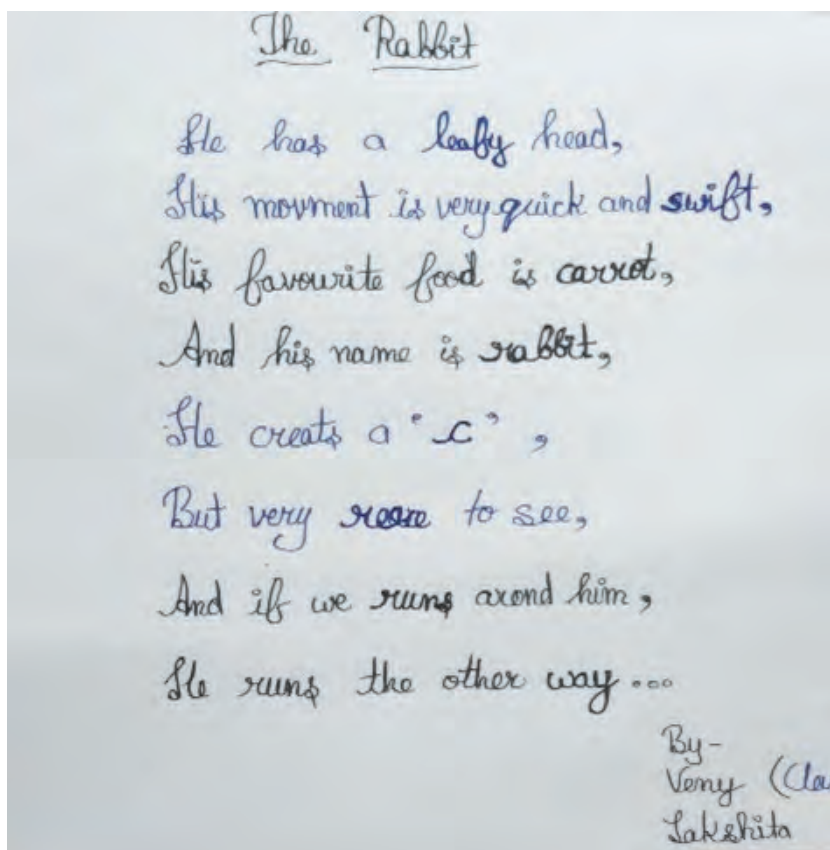 The Rabbit
He has a leafy head,
His movment is very quick and swift,
His favourite food is carrot,
And his name is rabbit,
He creats a "C",
But very to see,
And if we runs arond him,
He runs the other way...
By-
Veny (Clas
Lakshita